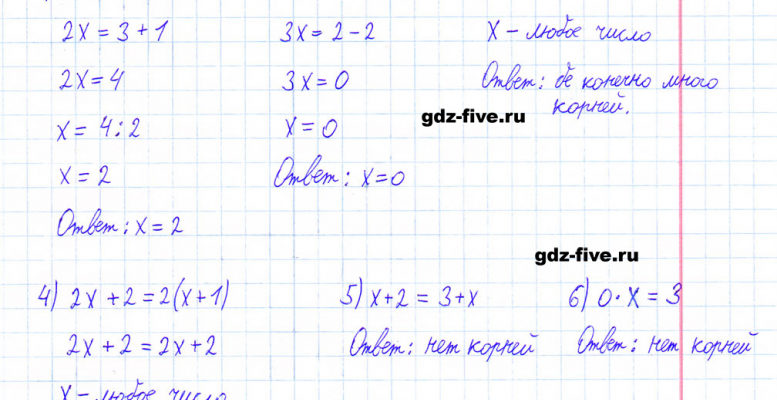 2x = 3 + 1
2x = 4
x = 4 : 2
x = 2
Ответ: x = 2
3x = 2 - 2
3x = 0
x = 0
Ответ: x = 0
x - любое число
Ответ: бе конечно много
корней.
gdz-five.ru
gdz-five.ru
4) 2x + 2 = 2(x+1)
2x + 2 = 2x + 2
x - любое число
5) x + 2 = 3 + x
Ответ: нет корней
6) 0 · x = 3
Ответ: нет корней